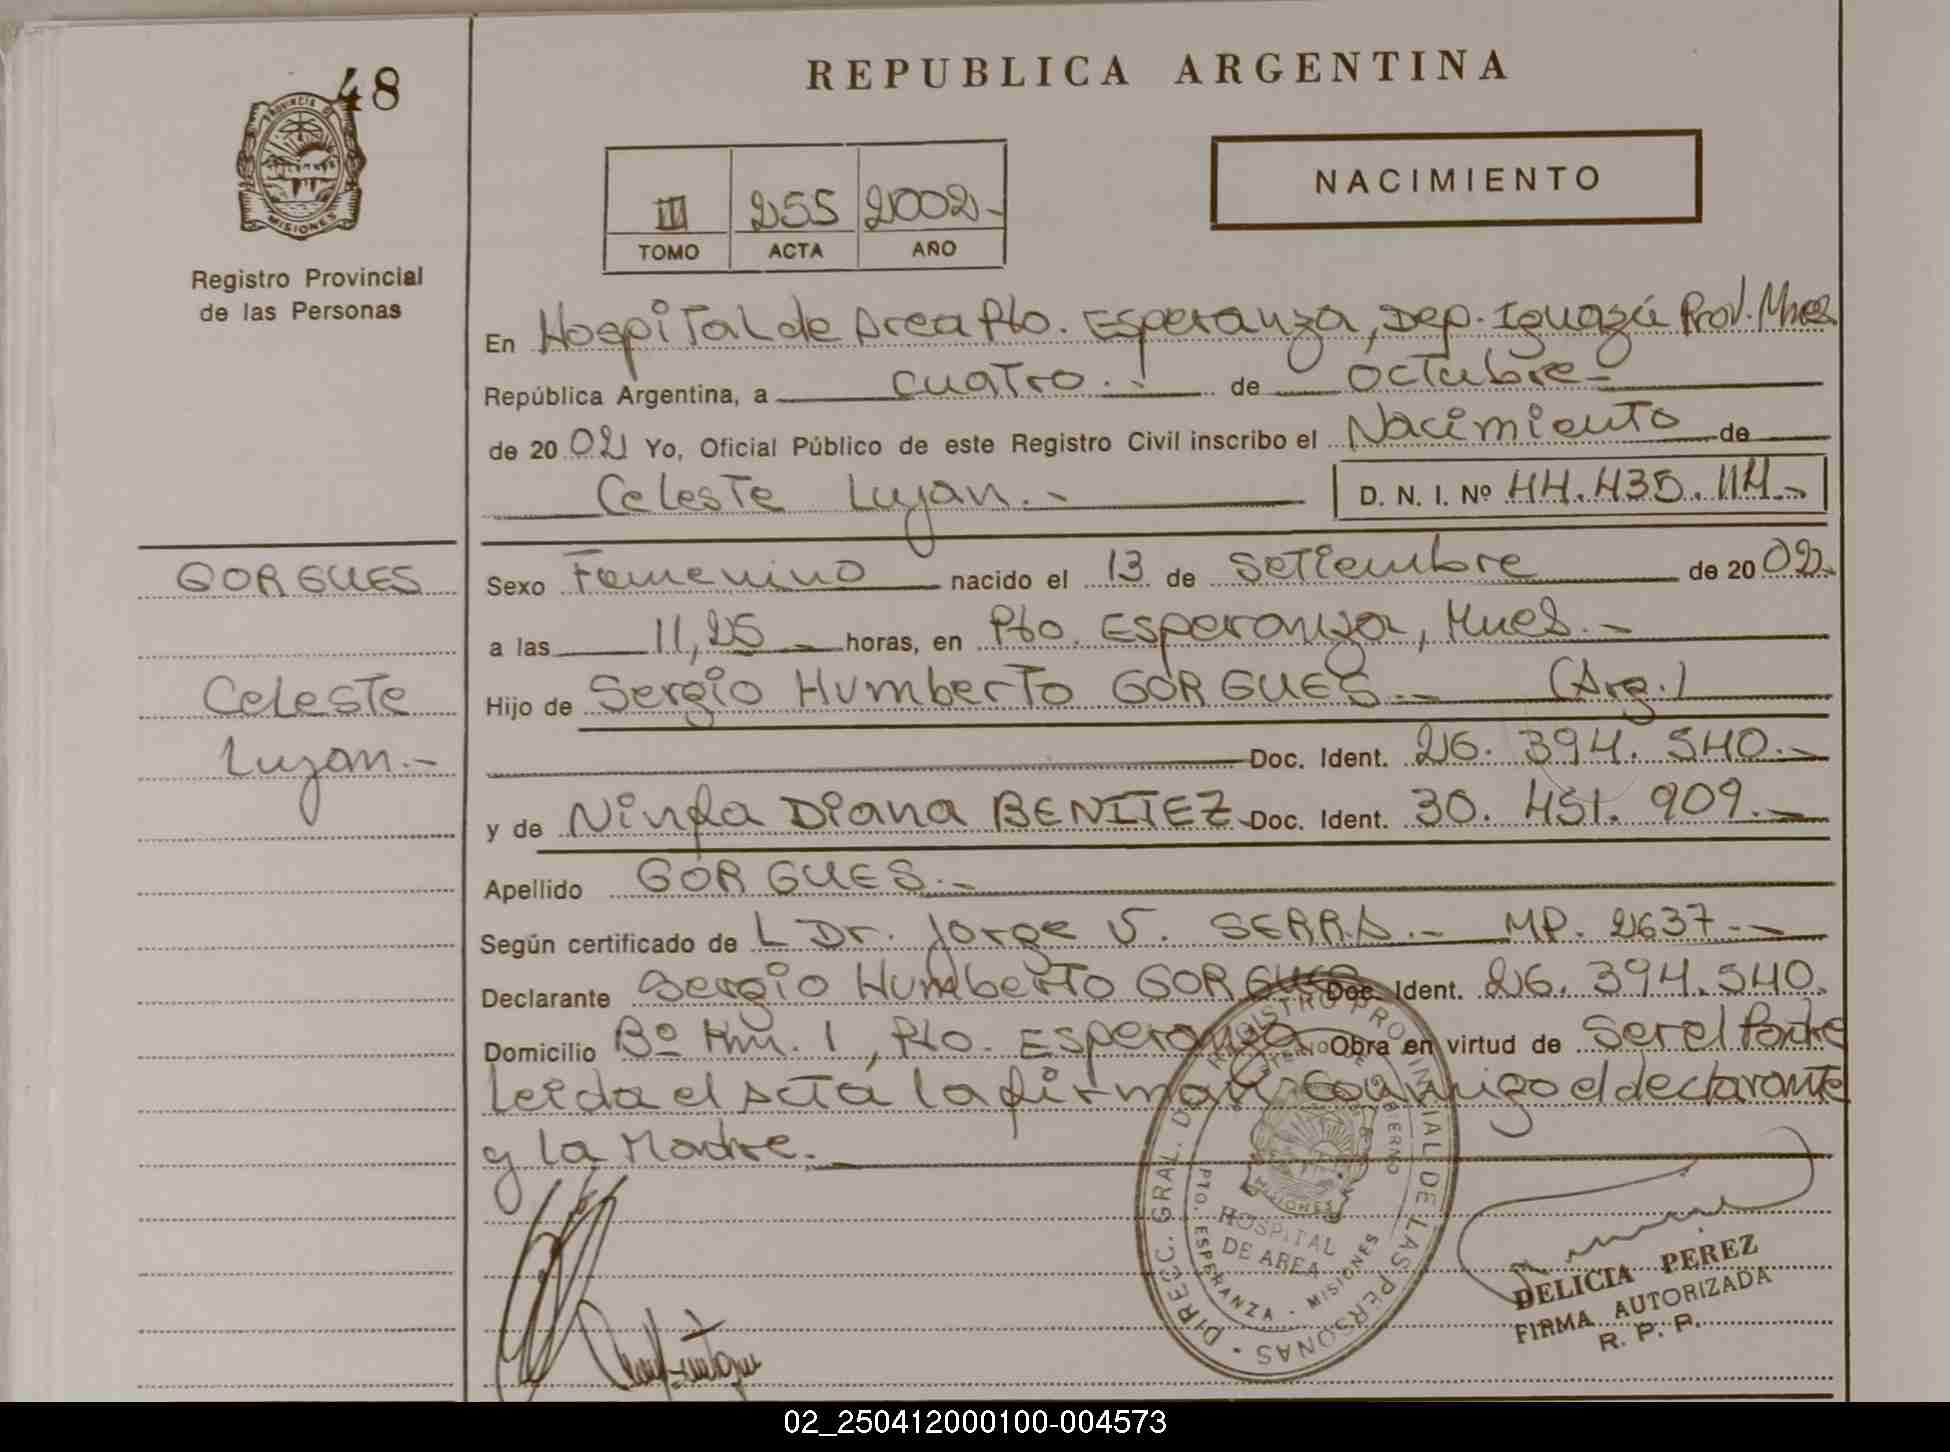 48
REPUBLICA ARGENTINA
PROVINCIA DE
MISIONES
Registro Provincial
de las Personas
III 255 2002-
TOMO ACTA AÑO
NACIMIENTO
En Hospital de Area Pto. Esperanza, Dep. Iguazú Prov. Mnes
República Argentina, a cuatro.- de octubre-
de 2002 Yo, Oficial Público de este Registro Civil inscribo el Nacimiento de
Celeste Lujan.- D. N. I. Nº 44.435.114.-
GORGUES
Sexo Femenino nacido el 13 de Setiembre de 2002.
a las 11,25 horas, en Pto. Esperanza, Mnes.-
Celeste
Hijo de Sergio Humberto GORGUES.- (Arg.)
Lujan.-
Doc. Ident. 26.394.540.-
y de Ninfa Diana BENITEZ Doc. Ident. 30.451.909.-
Apellido GORGUES.-
Según certificado de L Dr. Jorge V. SERRA.- MP. 2637.-
Declarante Sergio Humberto GORGUES Doc. Ident. 26.394.540.
Domicilio Bº Km. 1, Pto. Esperanza Obra en virtud de Ser el Padre
Leida el Acta la firman conmigo el declarante
y la Madre.
DIREC. GRAL. DEL REGISTRO PROVINCIAL DE LAS PERSONAS
MISIONES
HOSPITAL
DE AREA
PTO. ESPERANZA - MISIONES
DELICIA PEREZ
FIRMA AUTORIZADA
R. P. P.
02_250412000100-004573